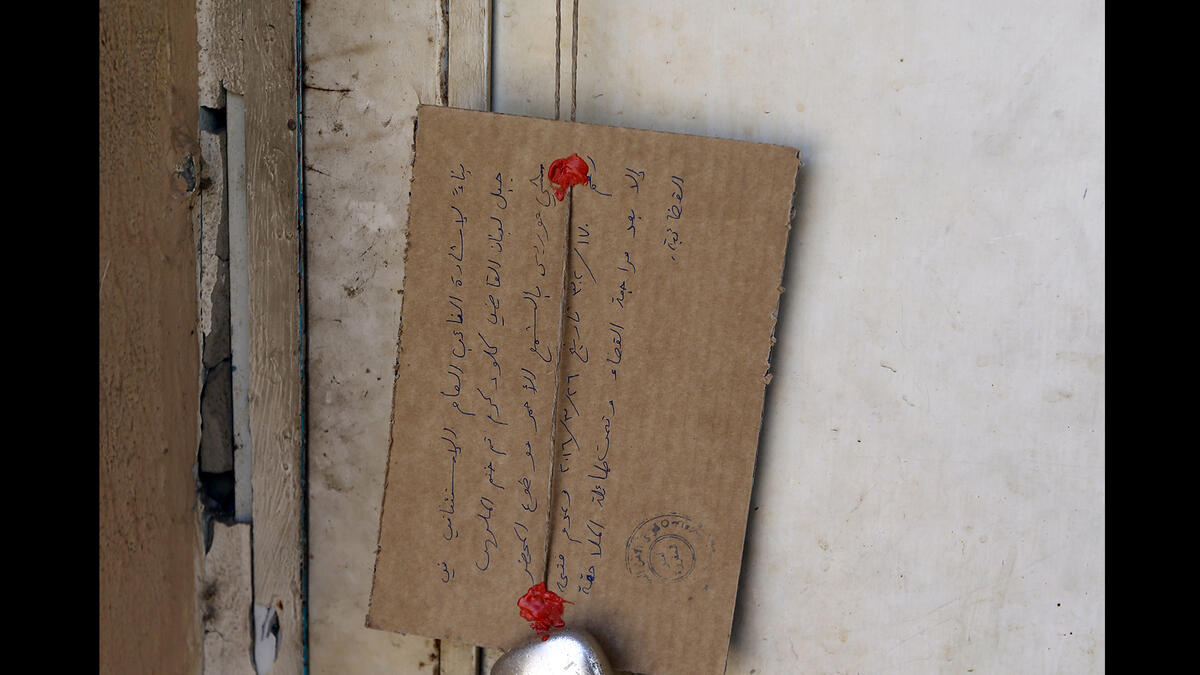 بناءً لاشارة النائب العام الاستئنافي في
جبل لبنان القاضي كلود كرم تم ختم
شي موريس بالشمع الأحمر موضوع المحضر
رقم ٣٠٢/١٧٠ تاريخ ٢٠١٦/٣/٢٦ وعدم فتحه
إلا بعد مراجعة القضاء وتحت طائلة الملاحقة
القضائية.